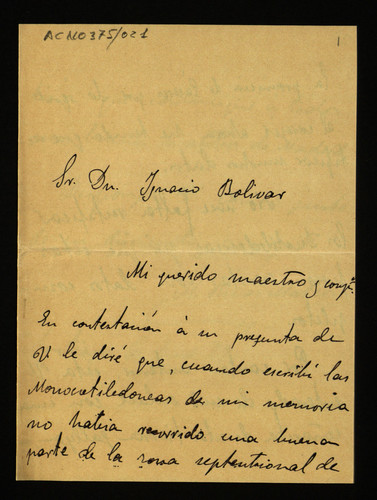 ACN0375/021
1
Sr. Dn. Ignacio Bolivar
Mi querido maestro y comp.
En contestación á su pregunta de
V le diré que, cuando escribí las
Monocotiledoneas de mi memoria
no habia recorrido una buena
parte de la zona septentrional de